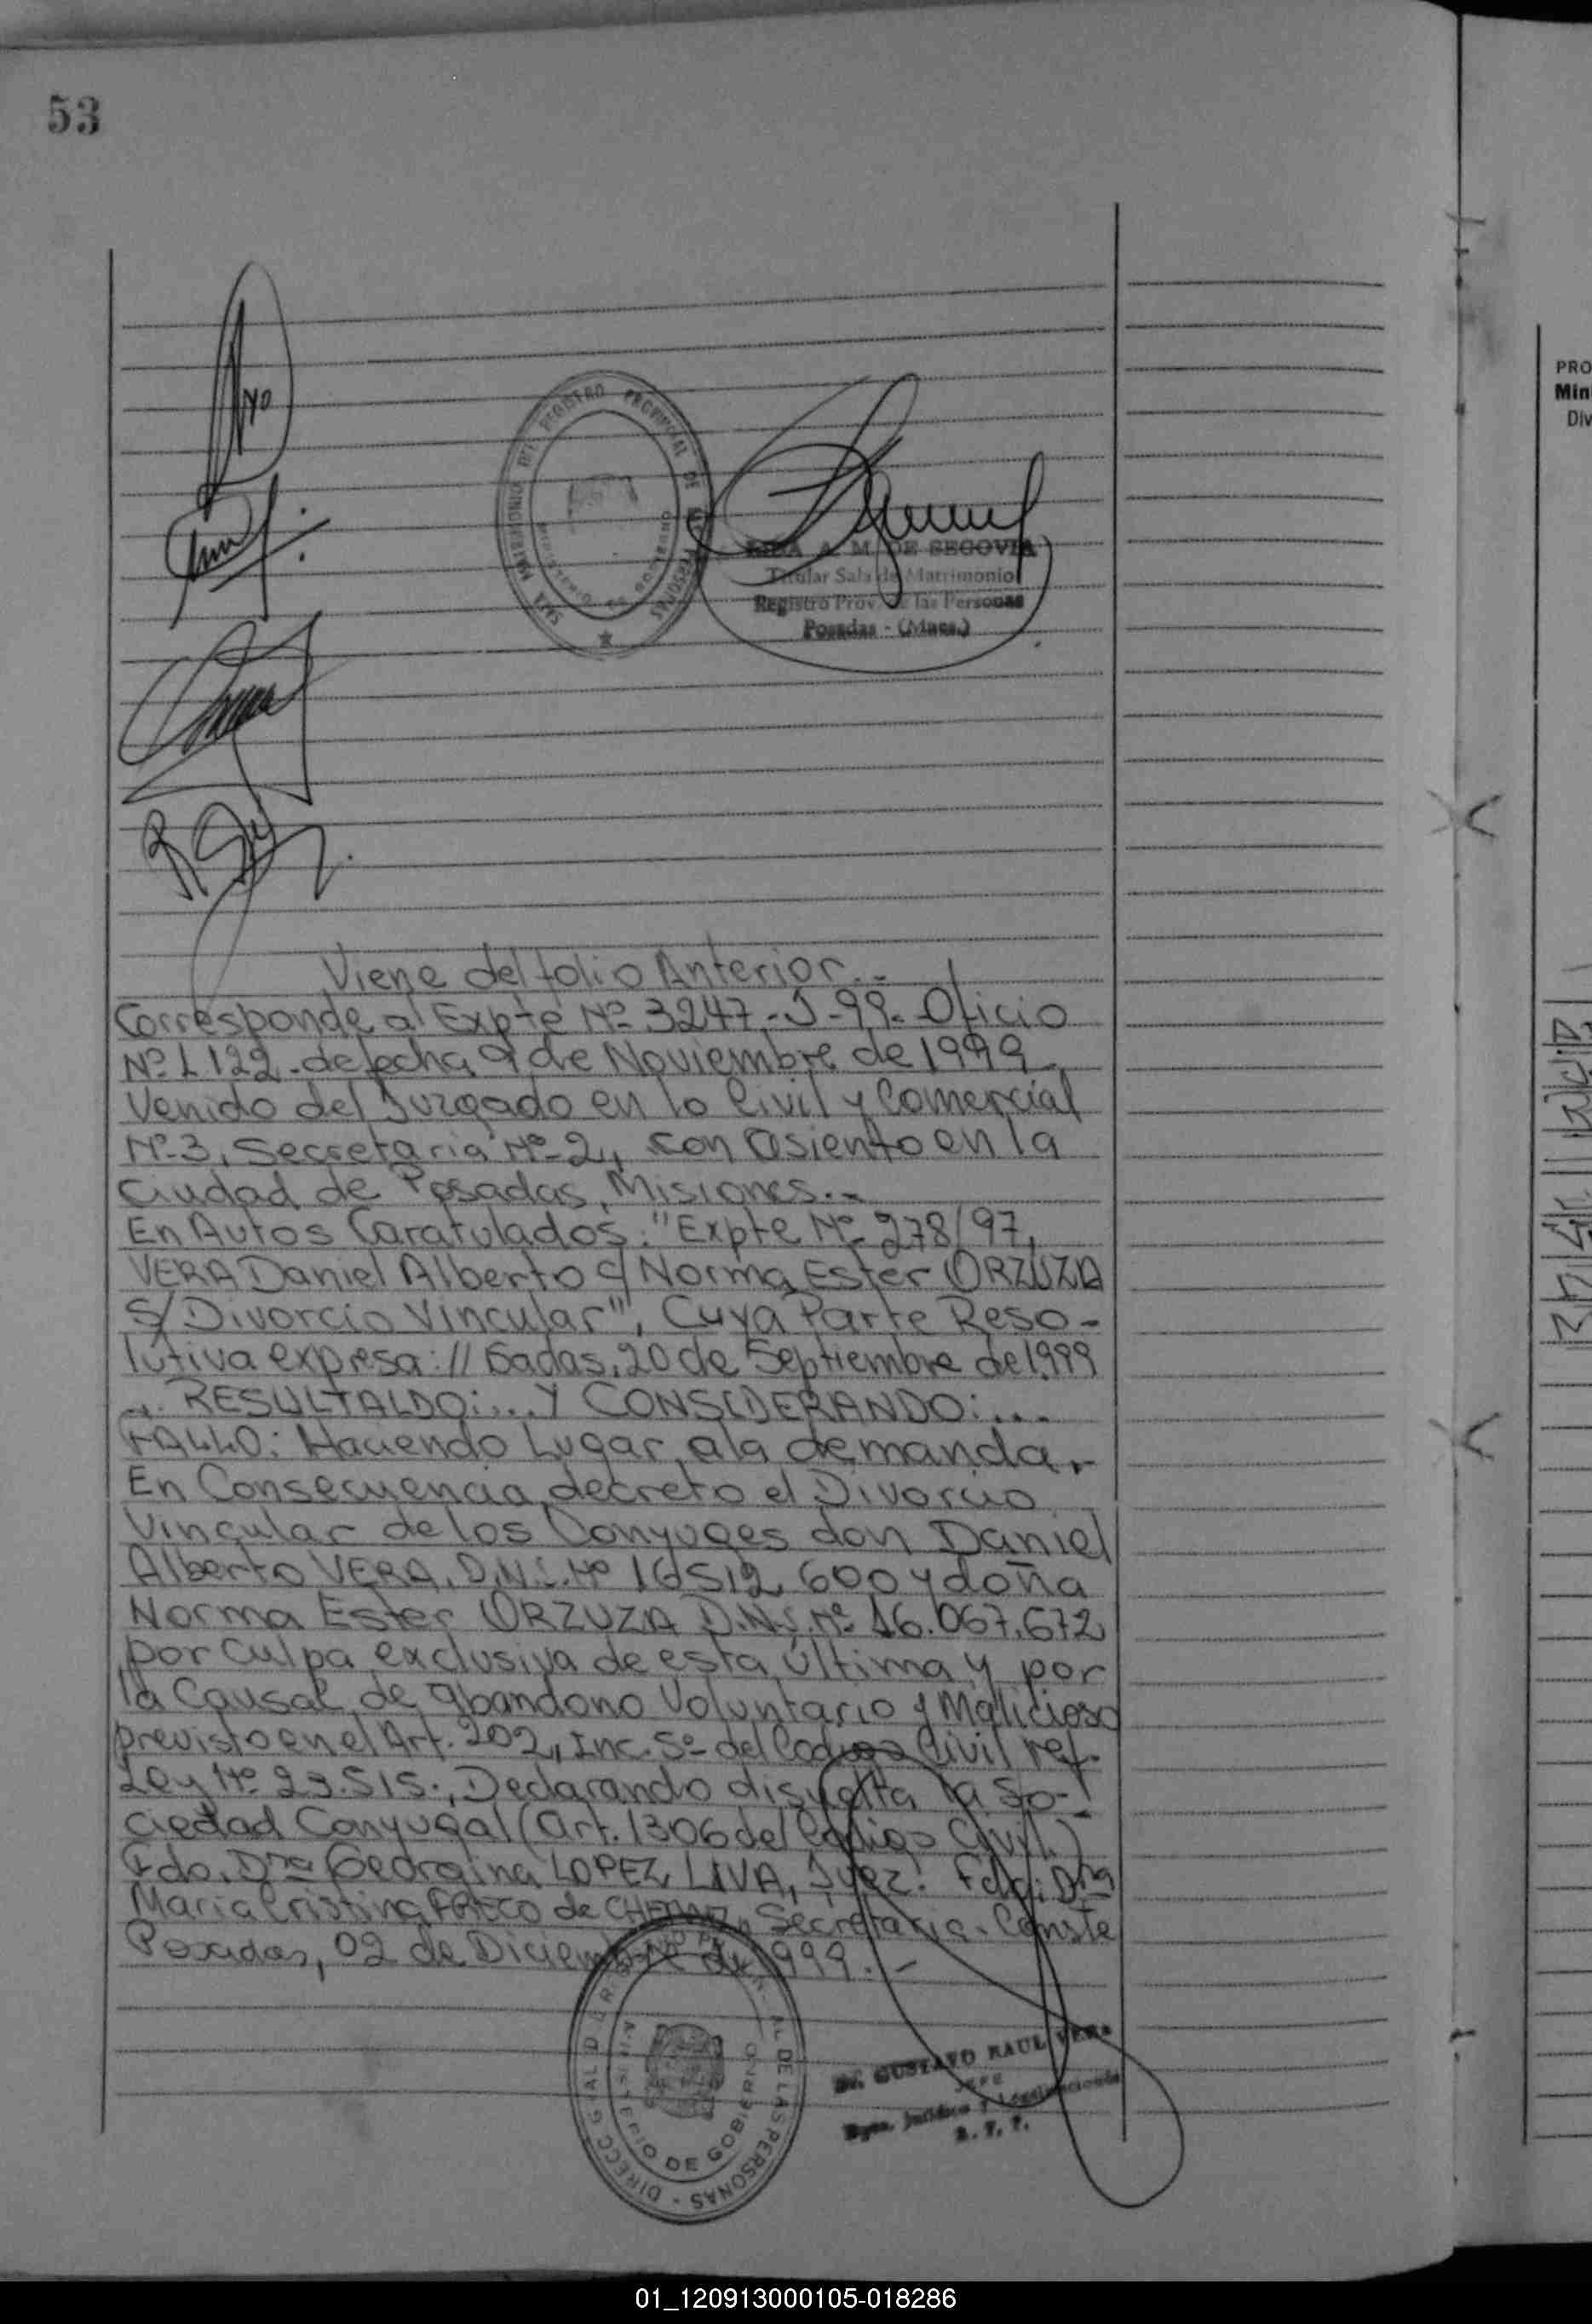 53
SALA MATRIMONIO DEL REGISTRO PROVINCIAL DE LAS PERSONAS
A. M. DE SEGOVIA
Titular Sala de Matrimonio
Registro Prov. de las Personas
Posadas - (Mnes.)
Viene del folio Anterior..-
Corresponde al Expte Nº 3247.-J-99.- Oficio
Nº L 122.- de fecha 9 de Noviembre de 1999
Venido del Juzgado en lo Civil y Comercial
Nº-3, Secretaria Nº-2, con asiento en la
Ciudad de Posadas, Misiones..-
En Autos Caratulados: "Expte Nº- 278/97,
VERA Daniel Alberto c/ Norma Ester ORZUZA
S/ Divorcio Vincular", Cuya Parte Reso-
lutiva expresa: // sadas, 20 de Septiembre de 1999
... RESULTALDO:... Y CONSIDERANDO:...
FALLO: Haciendo Lugar a la demanda.-
En Consecuencia, decreto el Divorcio
Vincular de los Conyuges don Daniel
Alberto VERA, D.N.I. Nº 16512.600 y doña
Norma Ester ORZUZA D.N.I. Nº 16.067.672
por culpa exclusiva de esta última y por
la Causal de abandono Voluntario y Malicioso
previsto en el Art. 202, Inc. 5º- del Codigo Civil ref.
Ley Nº 23.515.; Declarando disuelta la So-
ciedad Conyugal (art. 1306 del Codigo Civil.)
Fdo. Dra Georgina LOPEZ LIVA, Juez. Fdo: Dra
Maria Cristina de Secretaria. Conste
Posadas, 02 de Diciembre de 1999.-
DE LAS PERSONAS
DE GOBIERNO
Dr. GUSTAVO RAUL VERA
JEFE
PRO
Min
Div
01_120913000105-018286